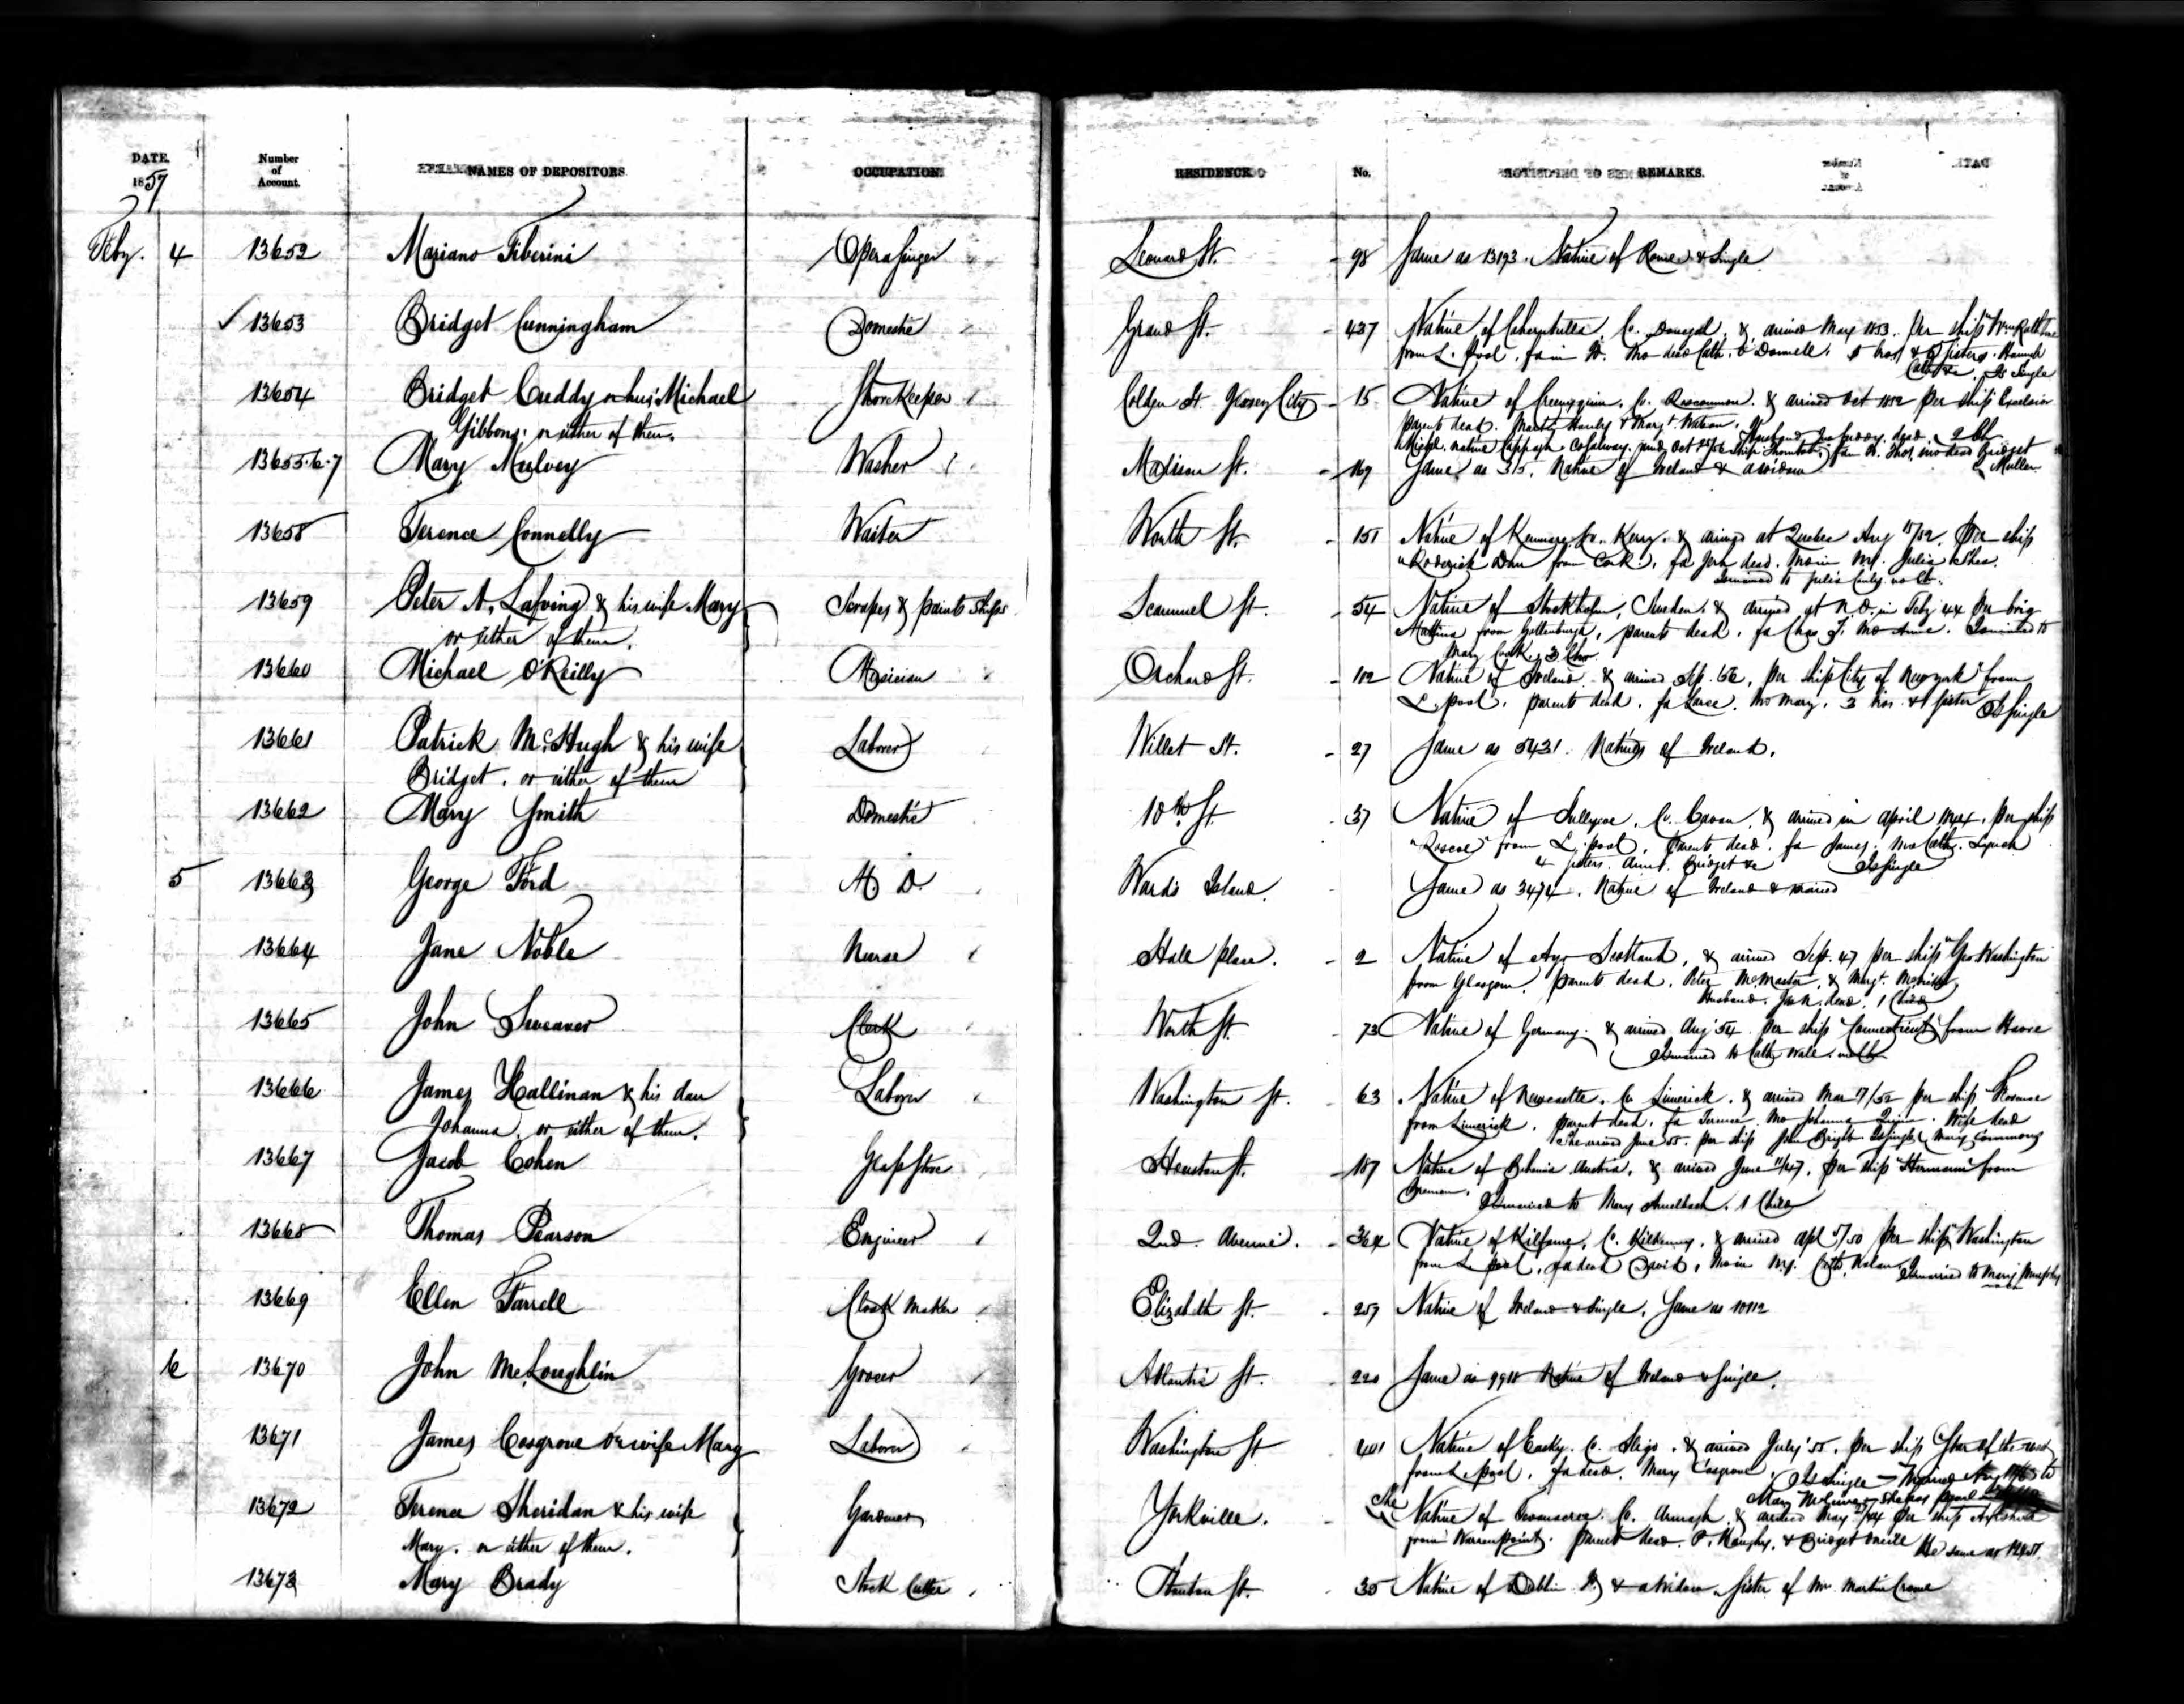 DATE. 1857
Number of Account.
NAMES OF DEPOSITORS.
OCCUPATION.
RESIDENCE.
No.
REMARKS.
Feby. 4 13652 Mariano Tiberini Opera Singer Leonard St. 98 Same as 13193. Native of Rome & Single
13653 Bridget Cunningham Domestic Grand St. 437 Native of Co. Donegal, & arrived May 1853. Per ship Wm Rathbone
from L. Pool. fa in Ir. mo dead Cath. O'Donnell. 5 bros & sisters. Hannah
Cath &c. Is Single
13654 Bridget Cuddy or Michael Storekeeper Colden St. Jersey City 15 Native of Co. Roscommon. & arrived Oct 1852 per ship Excelsior
Gibbons. or either of them.
parents dead. Martin Hanly & Margt. Watson. Husband dead. 2 Ch
13655.6.7 Mary Mulvey Washer Madison St. 169 Same as 315. Native of Ireland & a widow
13658 Terence Connelly Waiter Worth St. 151 Native of Kenmare, Co. Kerry. & arrived at Quebec Aug 15/52. Per ship
"Roderick Dhu from Cork". fa Jerh dead. Mo in N.Y. Julia Shea.
13659 Peter A. Lafving & his wife Mary Scrapes & paints Ships Scammel St. 54 Native of Stockholm, Sweden, & arrived at N.O. in Feby 44 per brig
or either of them.
from Gottenburgh, parents dead. fa Chas J. mo Anne. Is married to
Mary Cook. 3 Chn.
13660 Michael O'Reilly Musician Orchard St. 102 Native of Ireland & arrived Sep. '56, per ship "City of New York" from
L. pool. parents dead. fa Laree. mo Mary. 3 bros & 1 sister Is Single
13661 Patrick McHugh & his wife Laborer Willet St. 27 Same as 5431. Natives of Ireland.
Bridget. or either of them
13662 Mary Smith Domestic 10th St. 37 Native of Co. Cavan. & arrived in April 1844. per ship
"Roscoe" from L. pool. Parents dead. fa James. mo Cath. Lynch
4 sisters. Ann. Bridget &c Is Single
5 13663 George Ford M D. Wards Island. Same as 3474. Native of Ireland & married
13664 Jane Noble Nurse Hall place. 2 Native of Ayr Scotland, & arrived Sept. 47 per ship "Geo Washington
from Glasgow. parents dead. Peter McMaster, & Margt.
Husband. dead. 1 Child
13665 John Sweaver Clerk North St. 73 Native of Germany. & arrived Aug '54 per ship "Connecticut" from Havre
Is married to Cath
13666 James Hallinan & his dau Laborer Washington St. 63 Native of Newcastle. Co Limerick. & arrived Mar 17/52 per ship
Johanna, or either of them.
from Limerick. parents dead. fa Terence. Mo Johanna Quinn. Wife dead
She arrived June 55. per ship John Bright Is Single Mary Commons
13667 Jacob Cohen Glass Store Houston St. 187 Native of Bohemia Austria, & arrived June 11/47, per ship "Hermann" from
Bremen. Is married to Mary 1 Child
13668 Thomas Pearson Engineer 2nd. Avenue. 364 Native of Co. Kilkenny. & arrived Apl 5/50 per ship Washington
from L pool. fa dead David, Mo in N.Y. Cath. Nolan Is married to Mary Murphy
13669 Ellen Farrell Cloak Maker Elizabeth St. 257 Native of Ireland & Single. Same as 10112
6 13670 John McLoughlin Grocer Atlantic St. 220 Same as 9918 Native of Ireland & Single.
13671 James Cosgrove or wife Mary Laborer Washington St 401 Native of Easky. C. Sligo. & arrived July '55. per ship Star of the West
from L pool. fa dead. Mary Cosgrove. Is Single
13672 Terence Sheridan & his wife Gardener Yorkville. She Native of Co. Armagh. & arrived May per ship
Mary. or either of them.
from Warrenpoint. parents dead. & Bridget
13673 Mary Brady Stock Cutter Houston St. 35 Native of Dublin & a Widow. Sister of Mr Martin Crowe